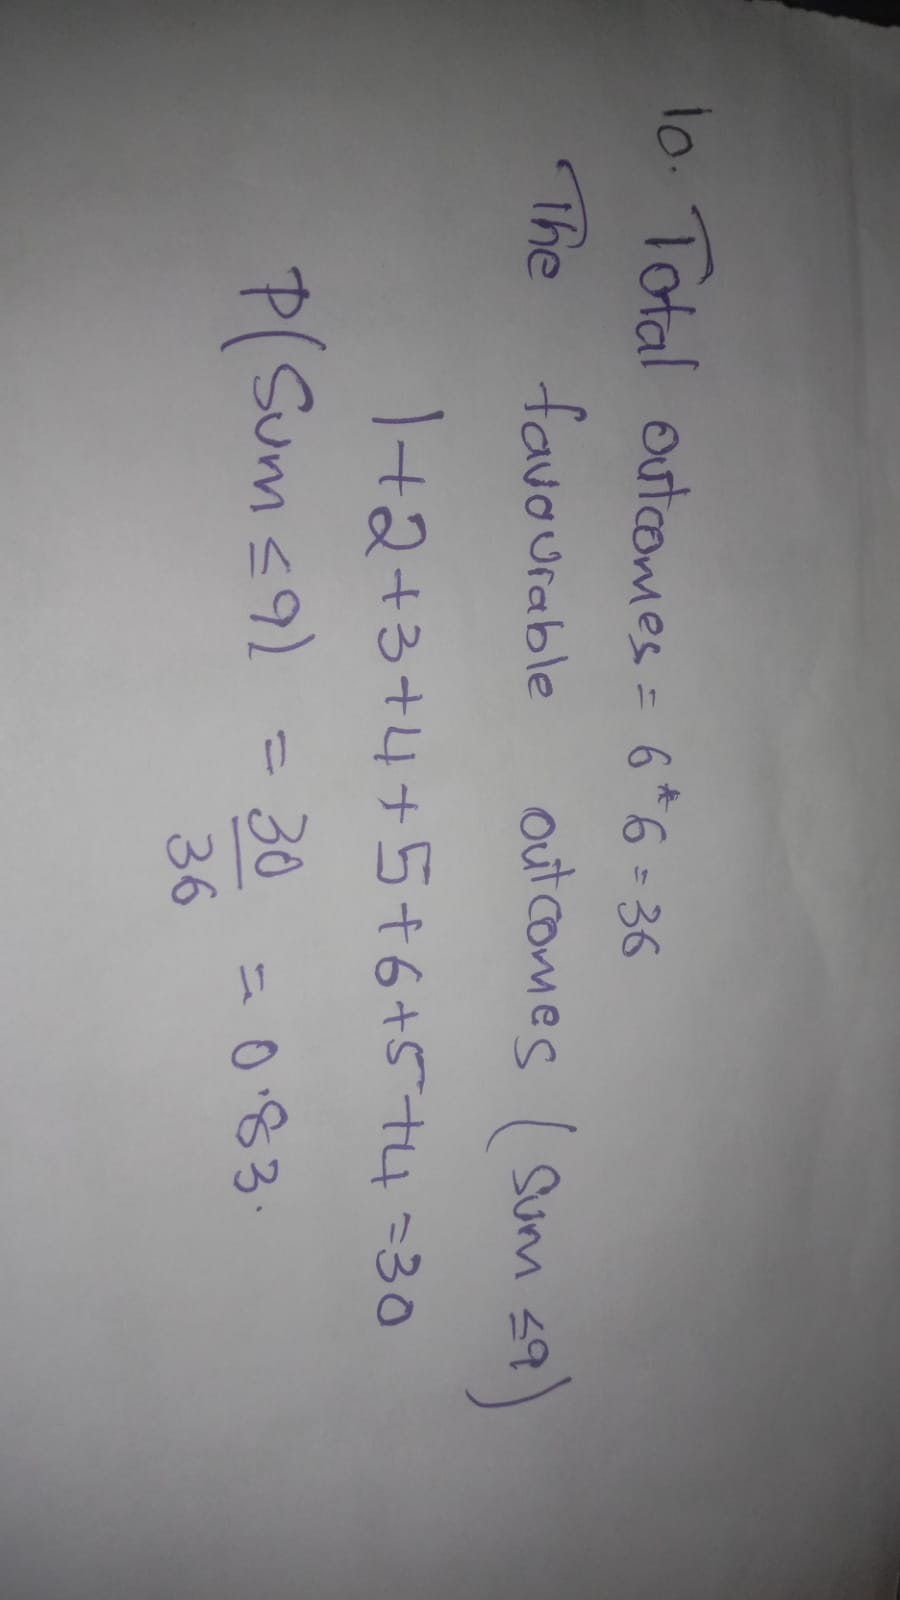 10. Total outcomes = 6*6 = 36
The favourable outcomes (Sum ≤9)
1+2+3+4+5+6+5+4 =30
P(Sum ≤9) = 30/36 = 0.83.